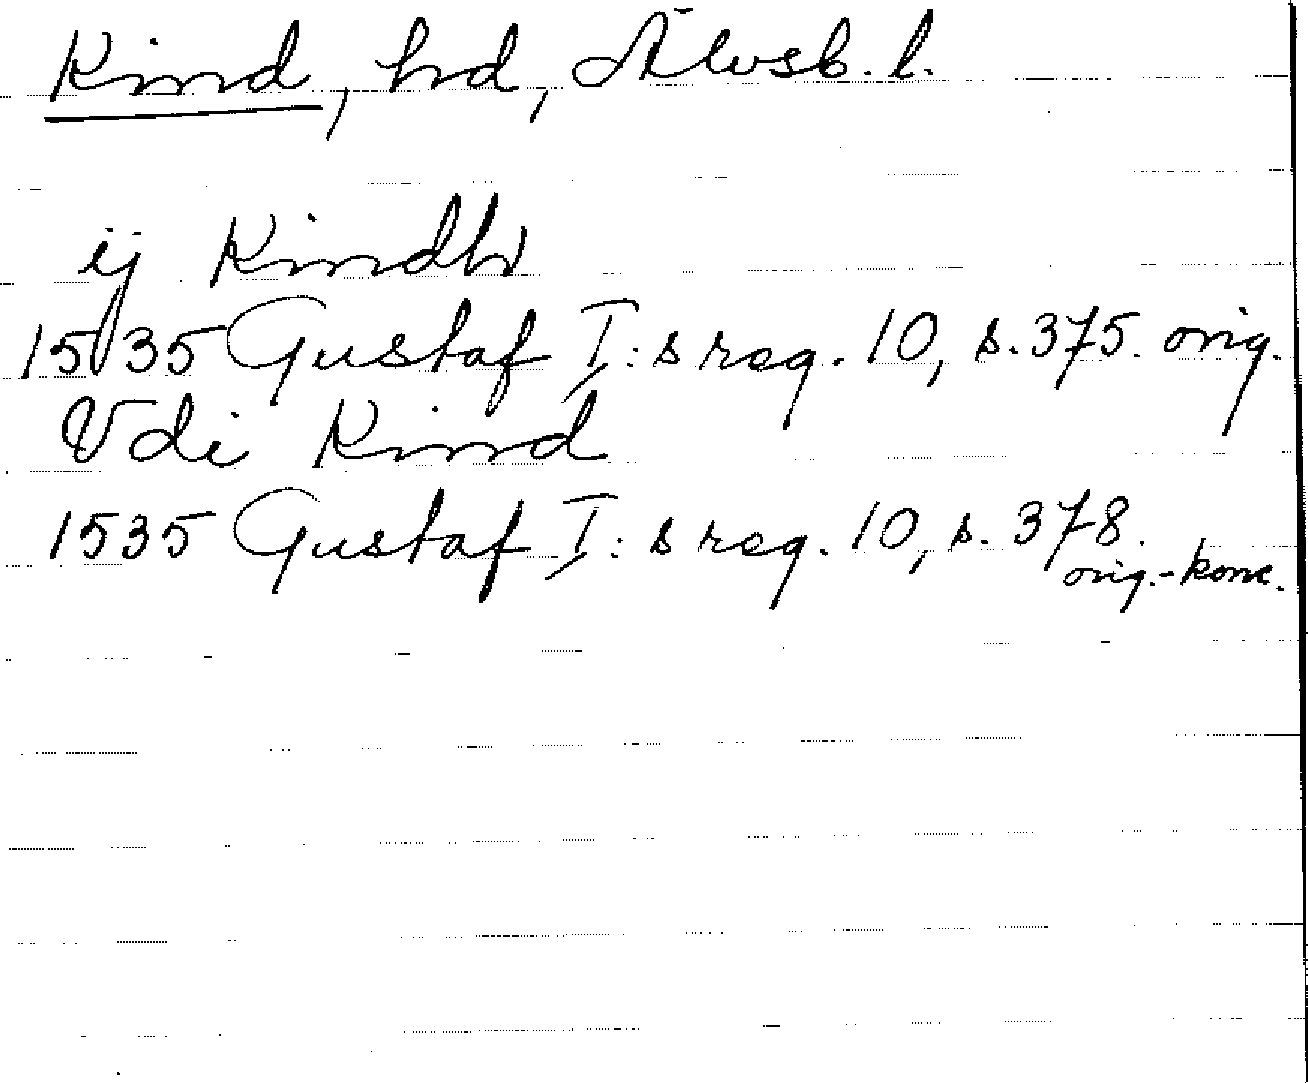 Kind, hd, Älvsb. l.
ij Kindh
1535 Gustaf I:s reg. 10, s. 375. orig.
Vdi Kind
1535 Gustaf I:s reg. 10, s. 378.
orig.-konc.